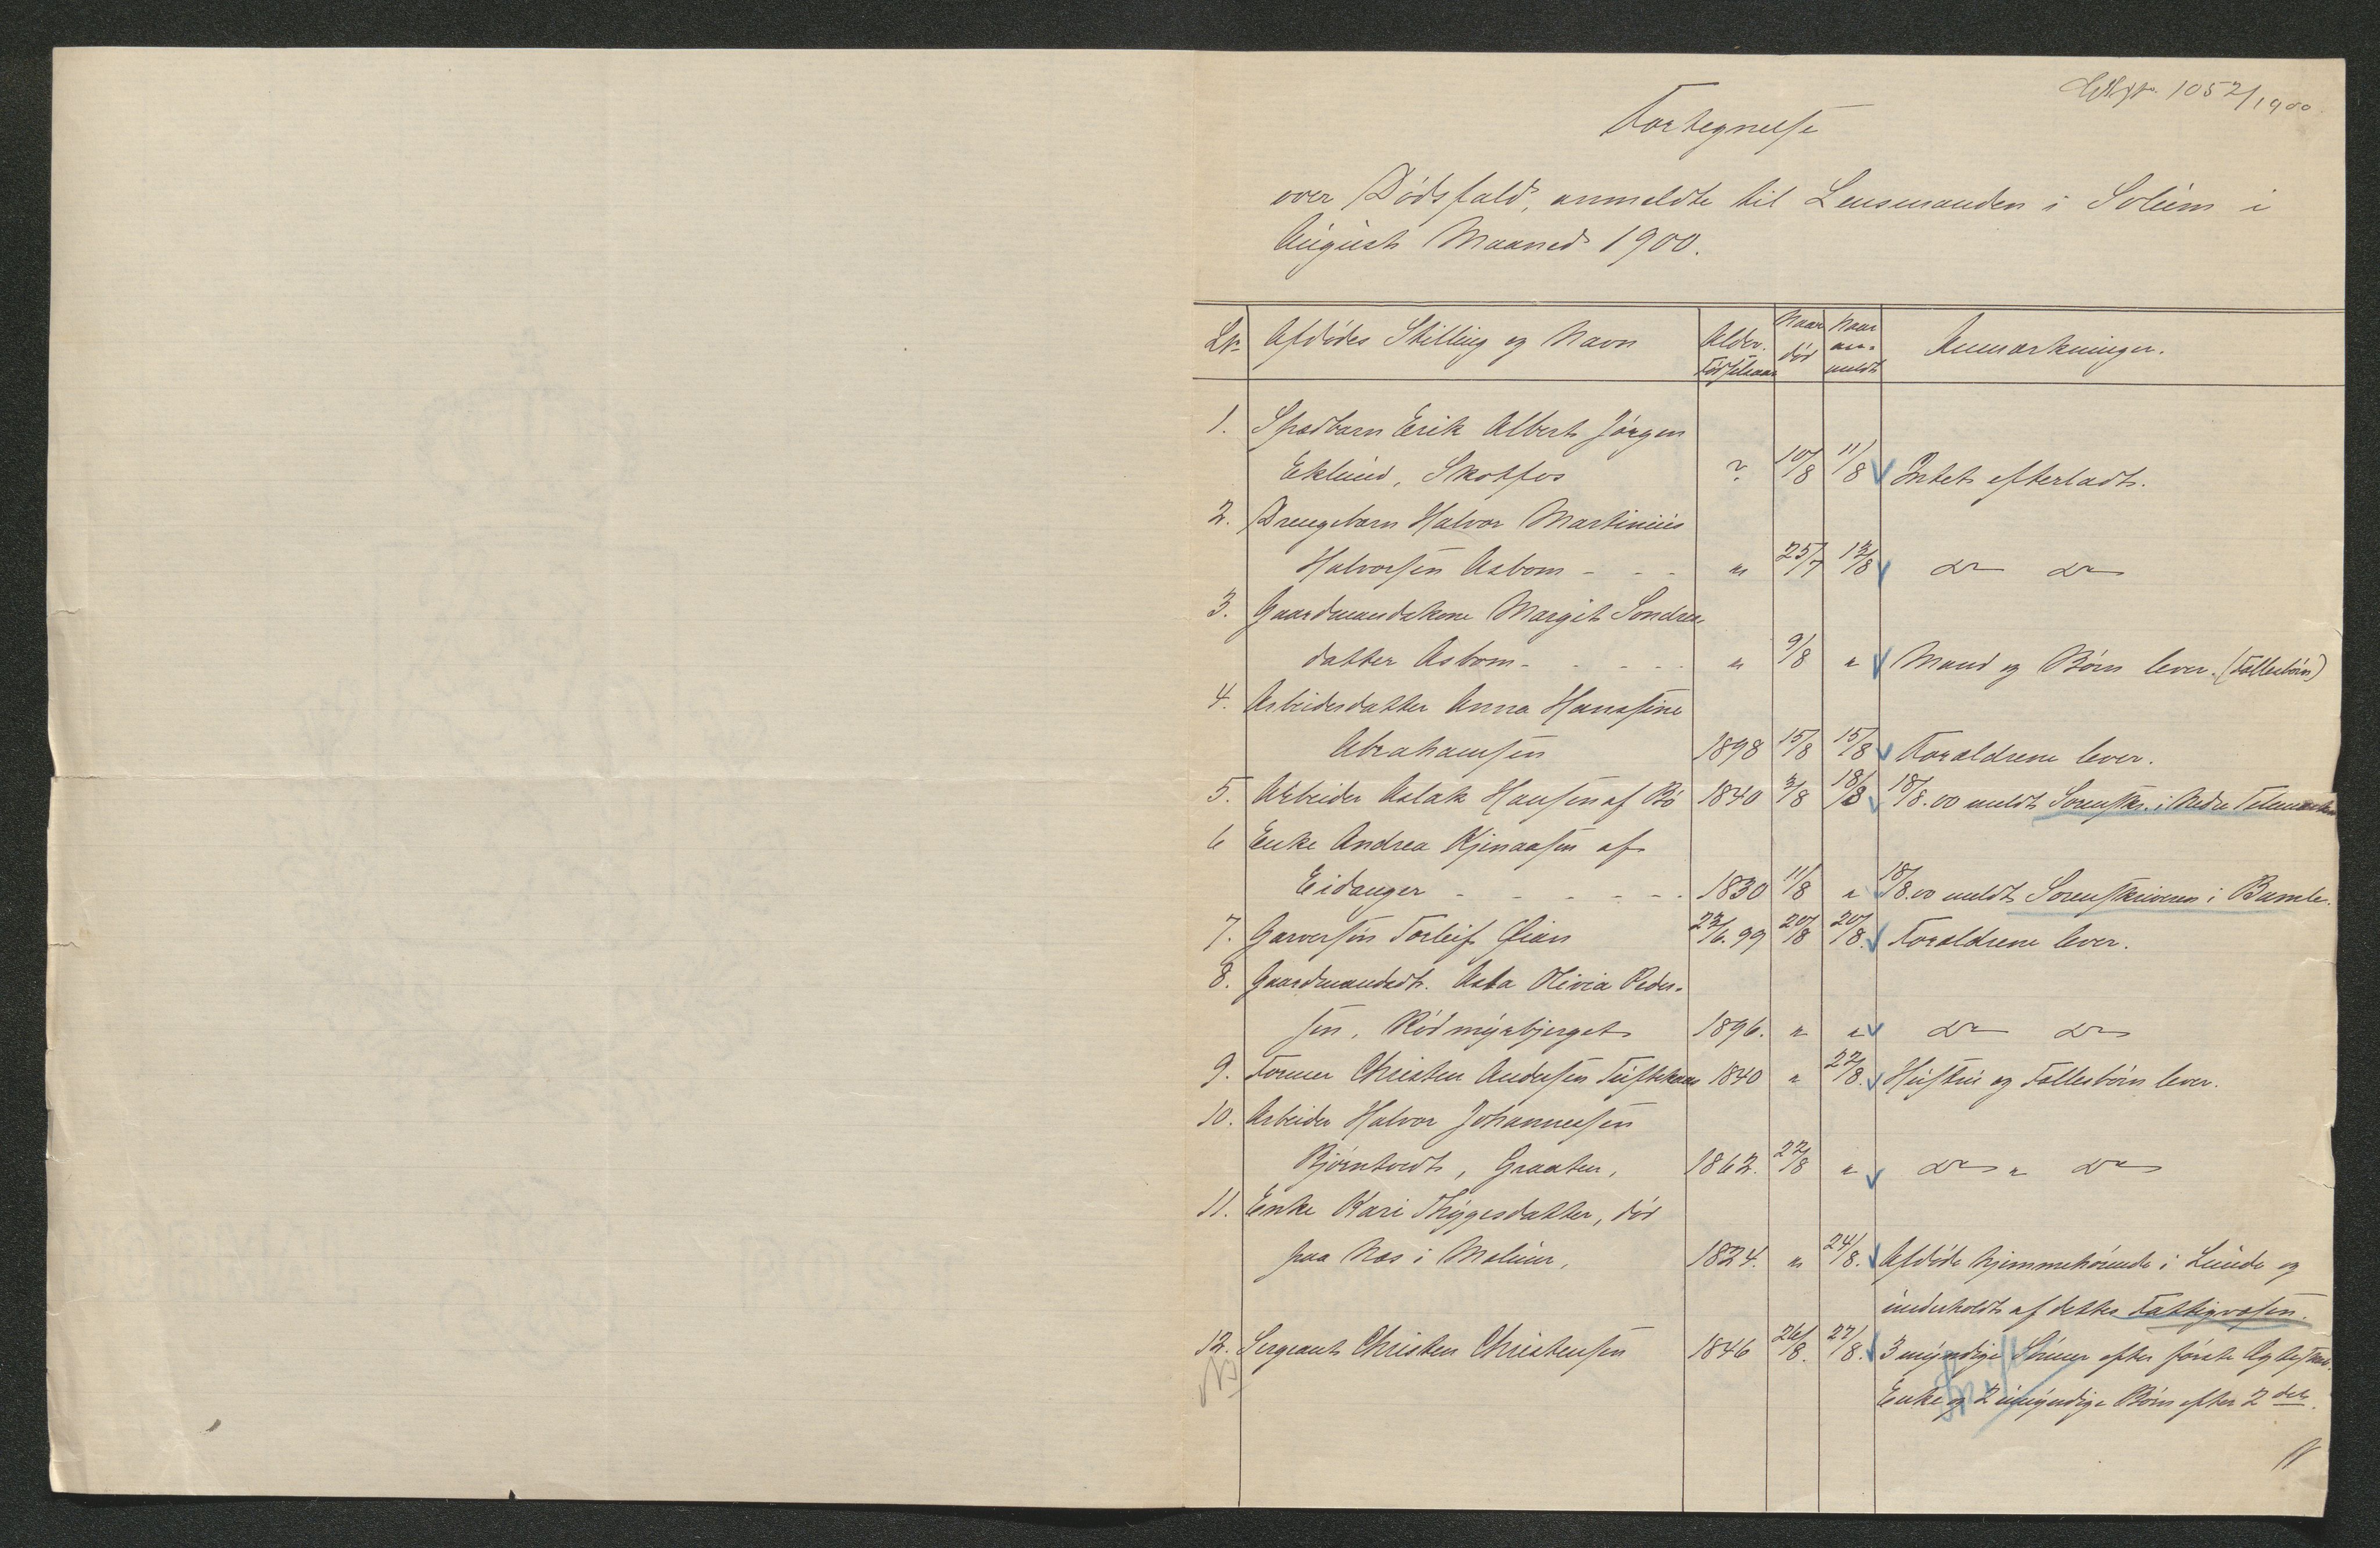 1052/1900
Fortegnelse
over Dødsfald, anmeldte til Lensmanden i Solum i
August Maaned 1900.
Lno Afdødes Stilling og Navn Alder. Fødselsaar Naar død Naar anmeldt Anmærkninger.
1. Spædbarn Erik Albert Jørgen
Eklund, Skotfos ? 10/8 11/8 Intet efterladt.
2. Drengebarn Halvor Martinius
Halvorsen Aabom - - - " 25/7 13/8 do do
3. Gaardmandskone Margit Sondres-
datter Aabom - - - - " 9/8 " Mand og Børn lever. (Fællesbørn)
4. Arbeiderdatter Anna Hansine
Abrahamsen 1898 15/8 15/8 Forældrene lever.
5. Arbeider Aslak Hansen af Bø 1840 3/8 18/8 18/8.00 meldt Sorenskr. i Nedre Telemarken
6 Enke Andrea Kjenaasen af
Eidanger - - - - - 1830 11/8 " 18/8.00 meldt Sorenskriveren i Bamle.
7. Garversøn Torleif Øian 23/6.99 20/8 20/8. Forældrene lever.
8. Gaardmandsdt. Asta Olivia Peder-
sen, Rødmyrbjerget 1896. " " do do
9. Former Christen Andersen Tuftekaas 1840 " 22/8. Hustru og Fællesbørn lever.
10. Arbeider Halvor Johannessen
Bjørntvedt, Graaten, 1862. 22/8 " do " do
11. Enke Kari Thygesdatter, død
paa Næs i Melum, 1824. " 24/8. Afdøde hjemmehørende i Lunde og
underholdt af dettes Fattigvæsen.
12. Sergeant Christen Christensen 1846 26/8. 27/8. 3 myndige Sønner efter første Ægteskab.
Enke og 2 umyndige Børn efter 2det.